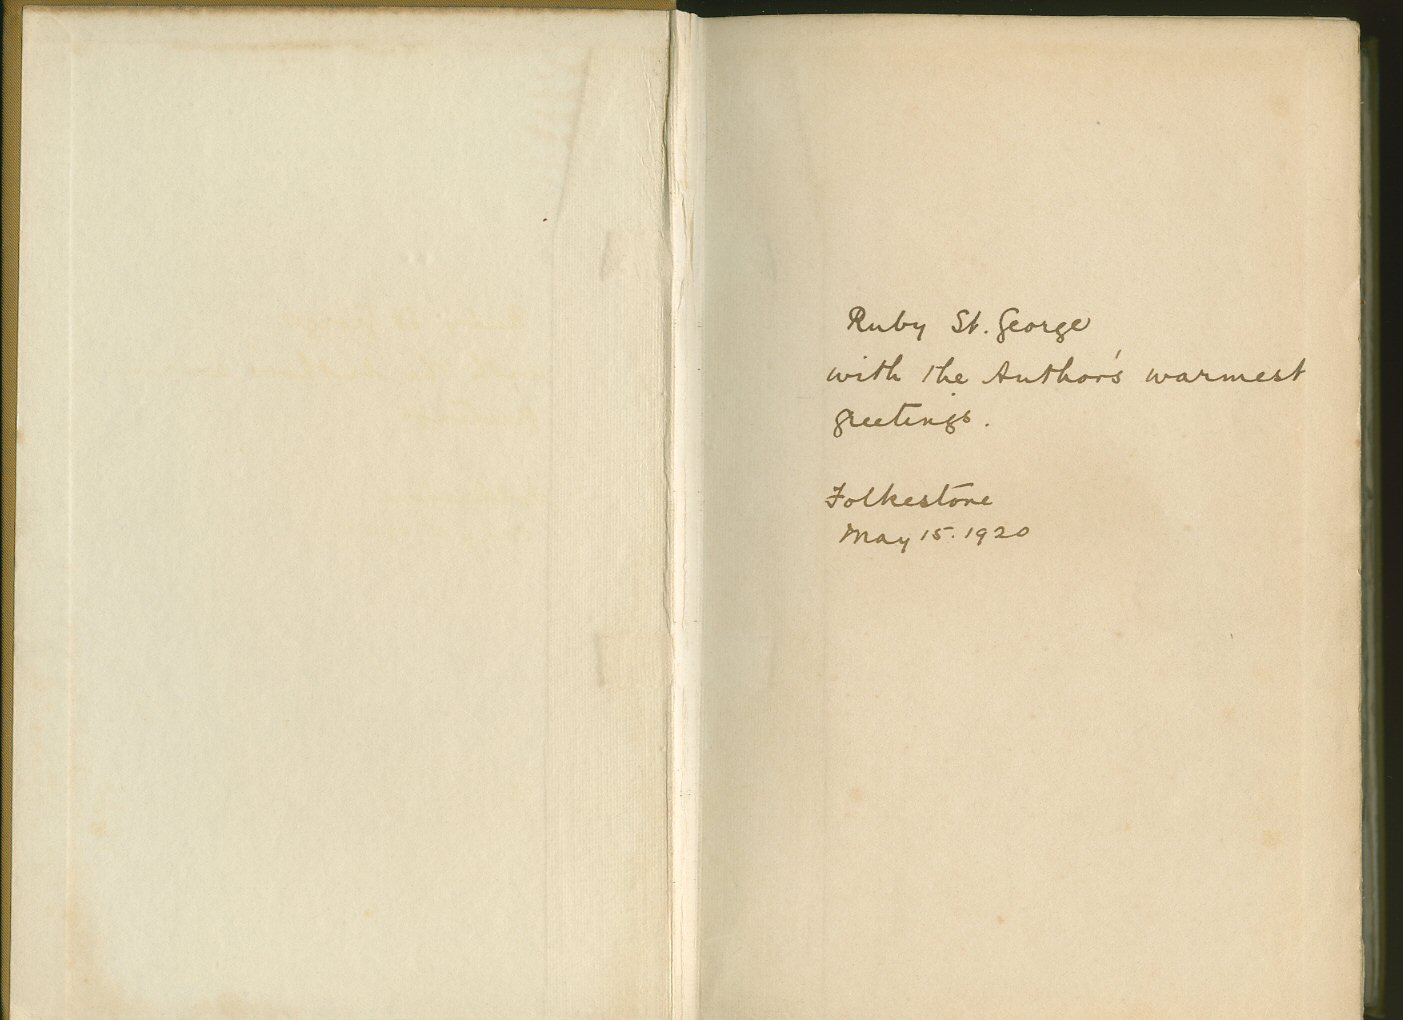 Ruby St. George
with the Author's warmest
greetings.
Folkestone
May 15. 1920